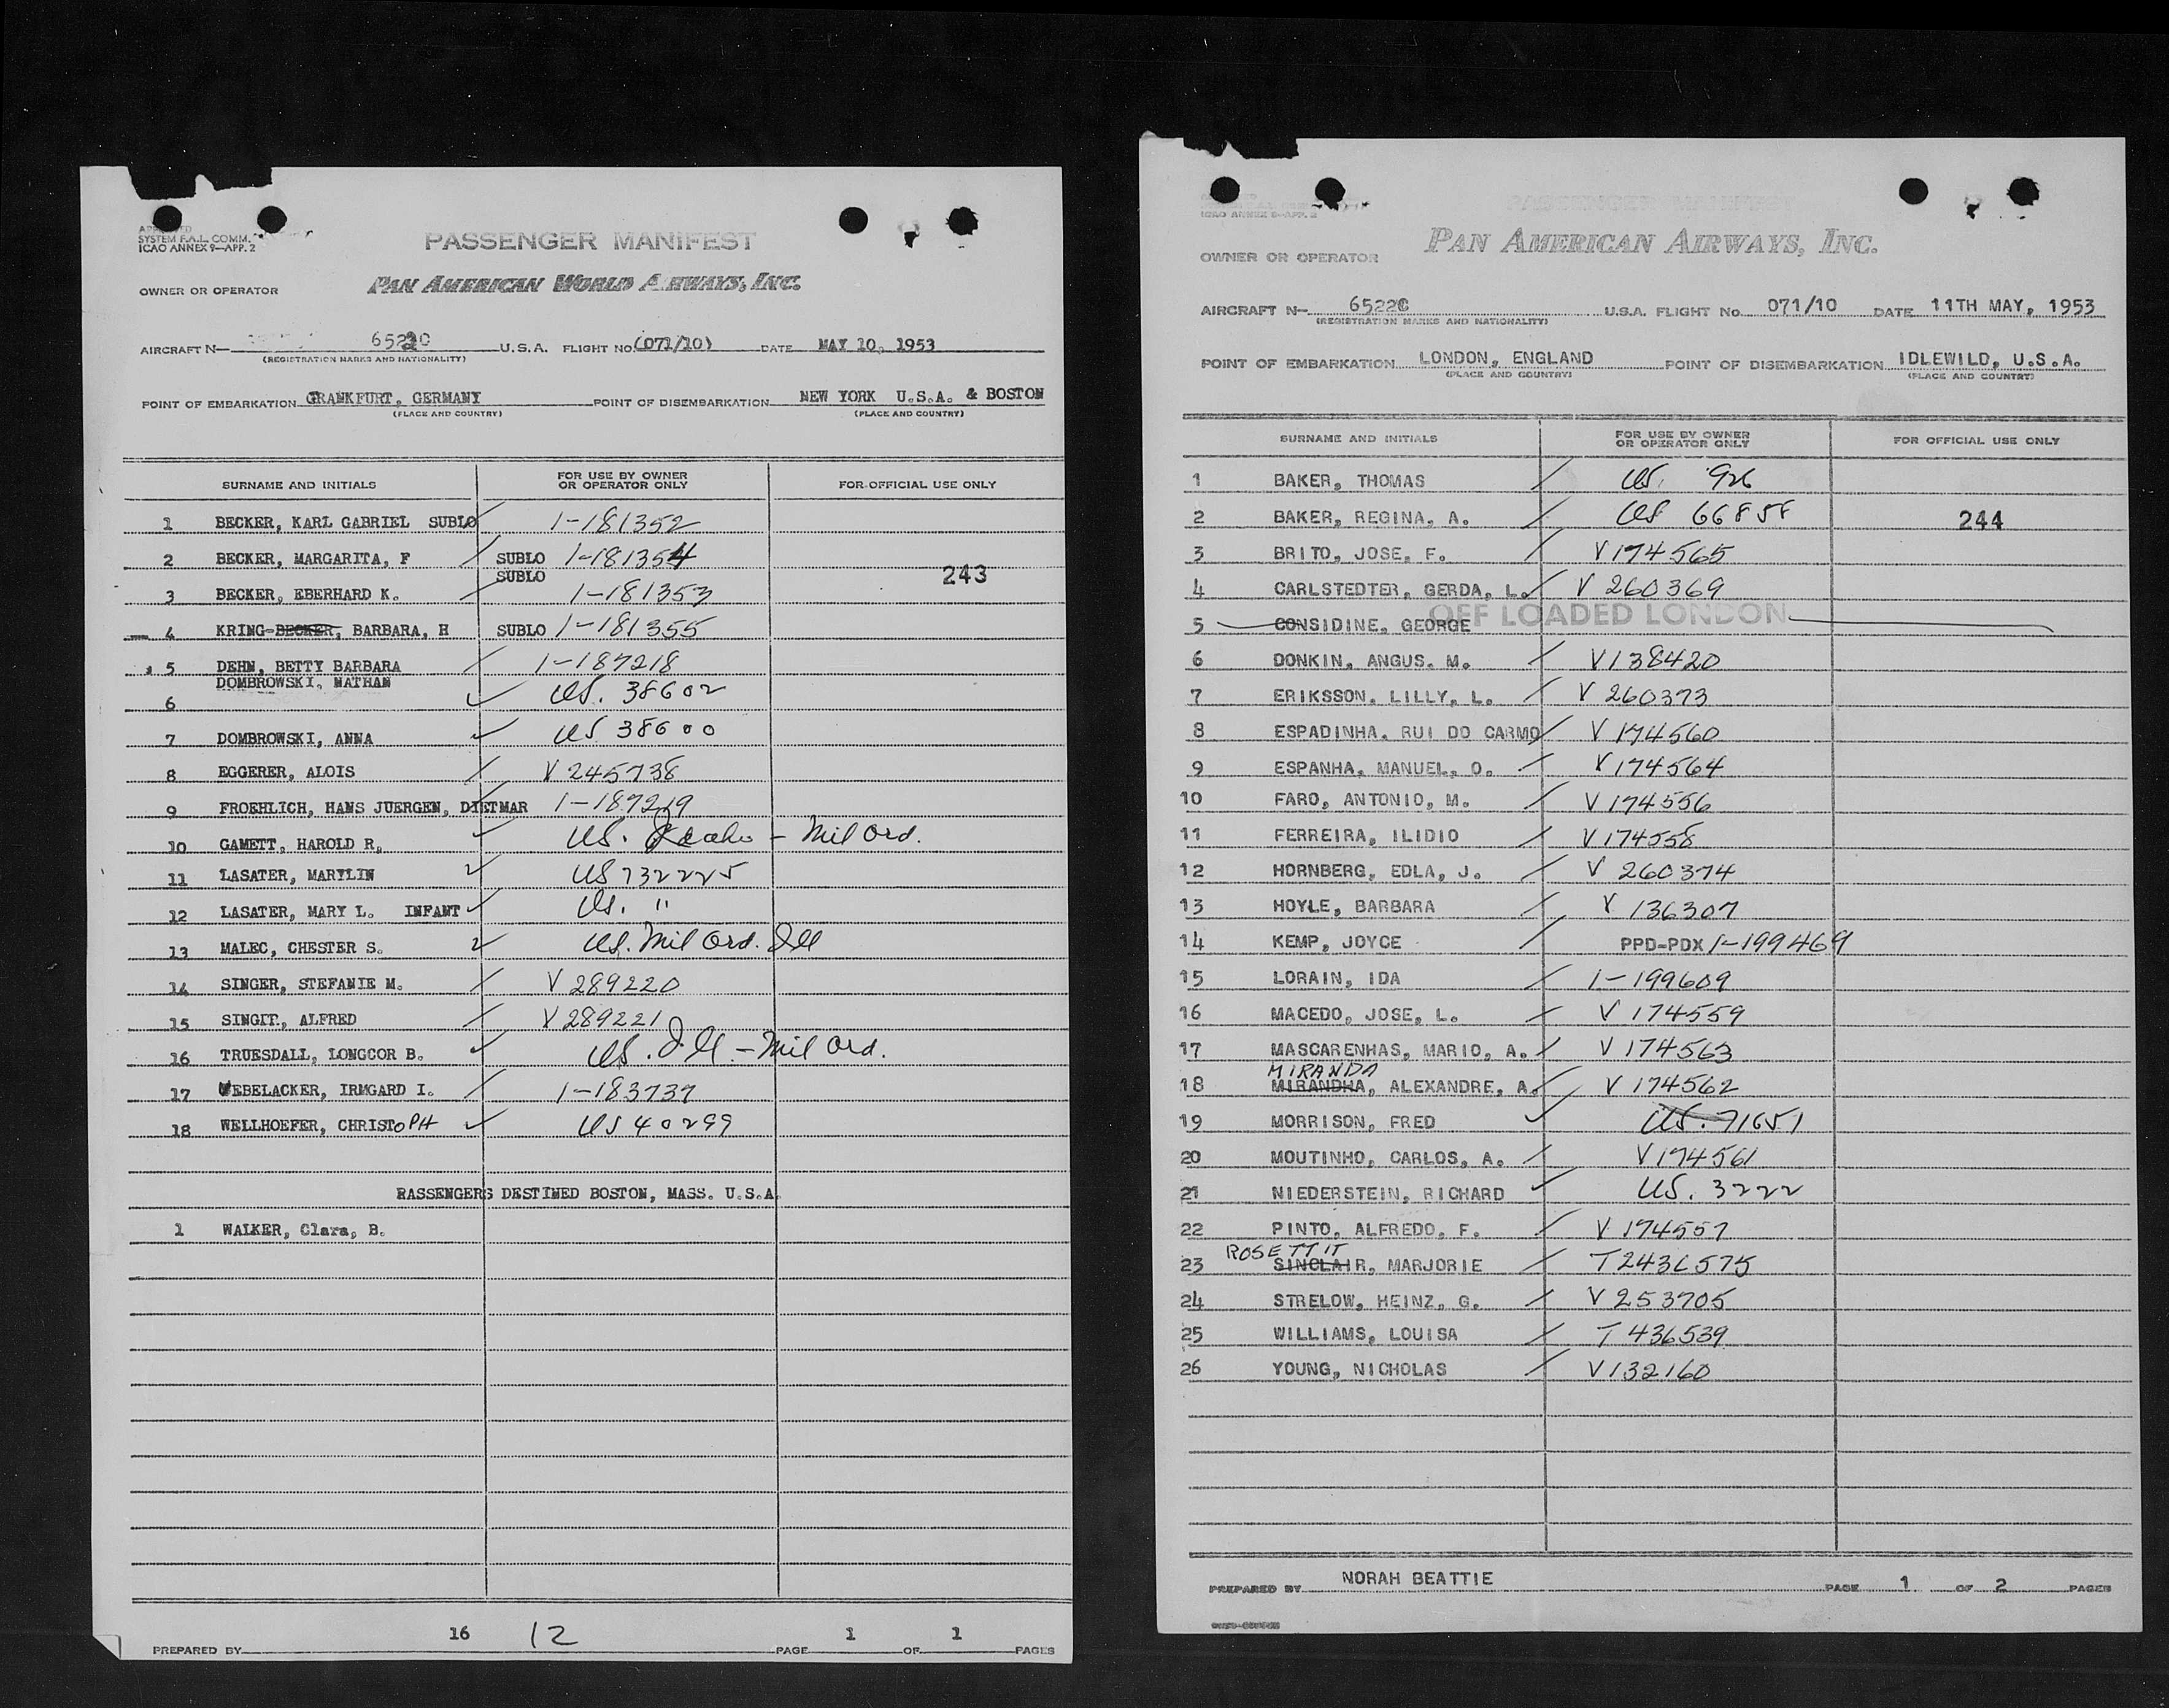 SYSTEM F.A.L. COMM.
ICAO ANNEX 9—APP. 2
PASSENGER MANIFEST
OWNER OR OPERATOR PAN AMERICAN WORLD AIRWAYS, INC.
AIRCRAFT N— 65220 U.S.A. FLIGHT NO (071/10) DATE MAY 10, 1953
(REGISTRATION MARKS AND NATIONALITY)
POINT OF EMBARKATION GRANKFURT, GERMANY POINT OF DISEMBARKATION NEW YORK U.S.A. & BOSTON
(PLACE AND COUNTRY) (PLACE AND COUNTRY)
SURNAME AND INITIALS FOR USE BY OWNER OR OPERATOR ONLY FOR OFFICIAL USE ONLY
1 BECKER, KARL GABRIEL SUBLO 1-181352
2 BECKER, MARGARITA, F / SUBLO 1-181354
243
3 BECKER, EBERHARD K. / SUBLO 1-181353
4 KRING-BECKER, BARBARA, H SUBLO 1-181355
5 DEHN, BETTY BARBARA / 1-187218
6 DOMBROWSKI, NATHAN ✓ US. 38602
7 DOMBROWSKI, ANNA ✓ US 38600
8 EGGERER, ALOIS / V 245738
9 FROEHLICH, HANS JUERGEN, DIETMAR 1-187219
10 GAMETT, HAROLD R. ✓ US. Idaho - Mil Ord.
11 LASATER, MARYLIN ✓ US 732225
12 LASATER, MARY L. INFANT ✓ US. "
13 MALEC, CHESTER S. ✓ US. Mil Ord. Ill
14 SINGER, STEFANIE M. / V 289220
15 SINGET, ALFRED / V 289221
16 TRUESDALL, LONGCOR B. ✓ US. Ill. - Mil Ord.
17 UEBELACKER, IRMGARD I. / 1-183737
18 WELLHOEFER, CHRISTOPH ✓ US 40299
RASSENGERS DESTINED BOSTON, MASS. U.S.A.
1 WALKER, Clara, B.
16 12
PREPARED BY PAGE 1 OF 1 PAGES
ICAO ANNEX 9—APP. 2
PASSENGER MANIFEST
PAN AMERICAN AIRWAYS, INC.
OWNER OR OPERATOR
AIRCRAFT N— 65220 U.S.A. FLIGHT No 071/10 DATE 11TH MAY, 1953
(REGISTRATION MARKS AND NATIONALITY)
POINT OF EMBARKATION LONDON, ENGLAND POINT OF DISEMBARKATION IDLEWILD, U.S.A.
(PLACE AND COUNTRY) (PLACE AND COUNTRY)
SURNAME AND INITIALS FOR USE BY OWNER OR OPERATOR ONLY FOR OFFICIAL USE ONLY
1 BAKER, THOMAS / US. 926
2 BAKER, REGINA, A. / US 66858 244
3 BRITO, JOSE, F. / V 174565
4 CARLSTEDTER, GERDA, L. / V 260369
5 CONSIDINE, GEORGE OFF LOADED LONDON
6 DONKIN, ANGUS. M. / V 138420
7 ERIKSSON, LILLY, L. / V 260373
8 ESPADINHA. RUI DO CARMO / V 174560
9 ESPANHA, MANUEL, O. / V 174564
10 FARO, ANTONIO, M. / V 174556
11 FERREIRA, ILIDIO / V 174558
12 HORNBERG, EDLA, J. / V 260374
13 HOYLE, BARBARA / V 136307
14 KEMP, JOYCE / PPD-PDX 1-199469
15 LORAIN, IDA / 1-199609
16 MACEDO, JOSE, L. / V 174559
17 MASCARENHAS, MARIO, A. / V 174563
MIRANDA
18 MIRANDHA, ALEXANDRE, A. / V 174562
19 MORRISON, FRED ✓ US. 71651
20 MOUTINHO, CARLOS, A. / V 174561
21 NIEDERSTEIN, RICHARD ✓ US. 3222
22 PINTO, ALFREDO, F. / V 174557
23 SINCLAIR, MARJORIE / T2436575
24 STRELOW, HEINZ, G. / V 253705
25 WILLIAMS, LOUISA / T 436539
26 YOUNG, NICHOLAS / V 132160
PREPARED BY NORAH BEATTIE PAGE 1 OF 2 PAGES